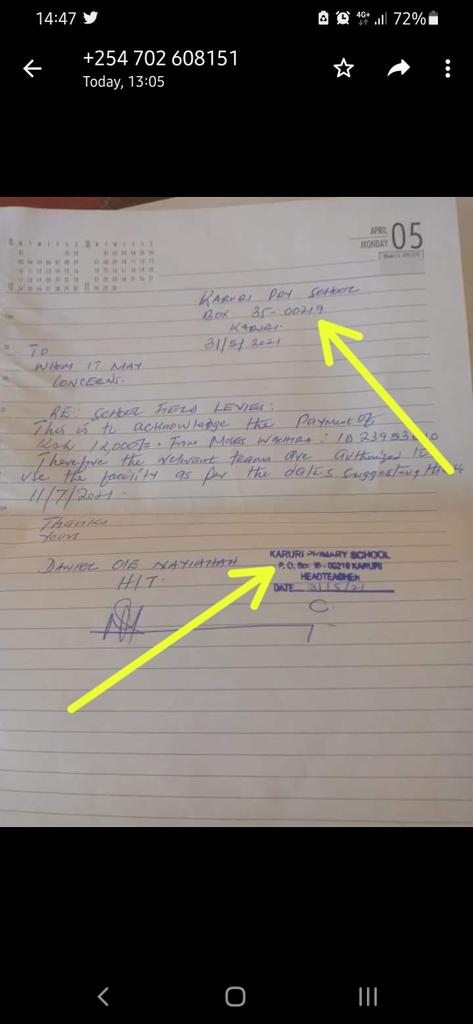 14:47
4G+
72%
+254 702 608151
Today, 13:05
APRIL
MONDAY
05
KARURI PRY SCHOOL
BOX 35-00219
KARURI.
31/5/2021
TO
WHOM IT MAY
CONCERNS.
RE: SCHOOL FIELD LEVIES:
This is to acknowledge the Payment of
Ksh 12,000/=. From MOSES WACHIRA: ID
Therefore the relevant teams are authorized to
use the facility as per the dates
11/7/2021.
Thanks
Yours
DANIEL OLE
H/T.
KARURI PRIMARY SCHOOL
P. O. Box - 00219 KARURI
HEADTEACHER
DATE 31/5/21